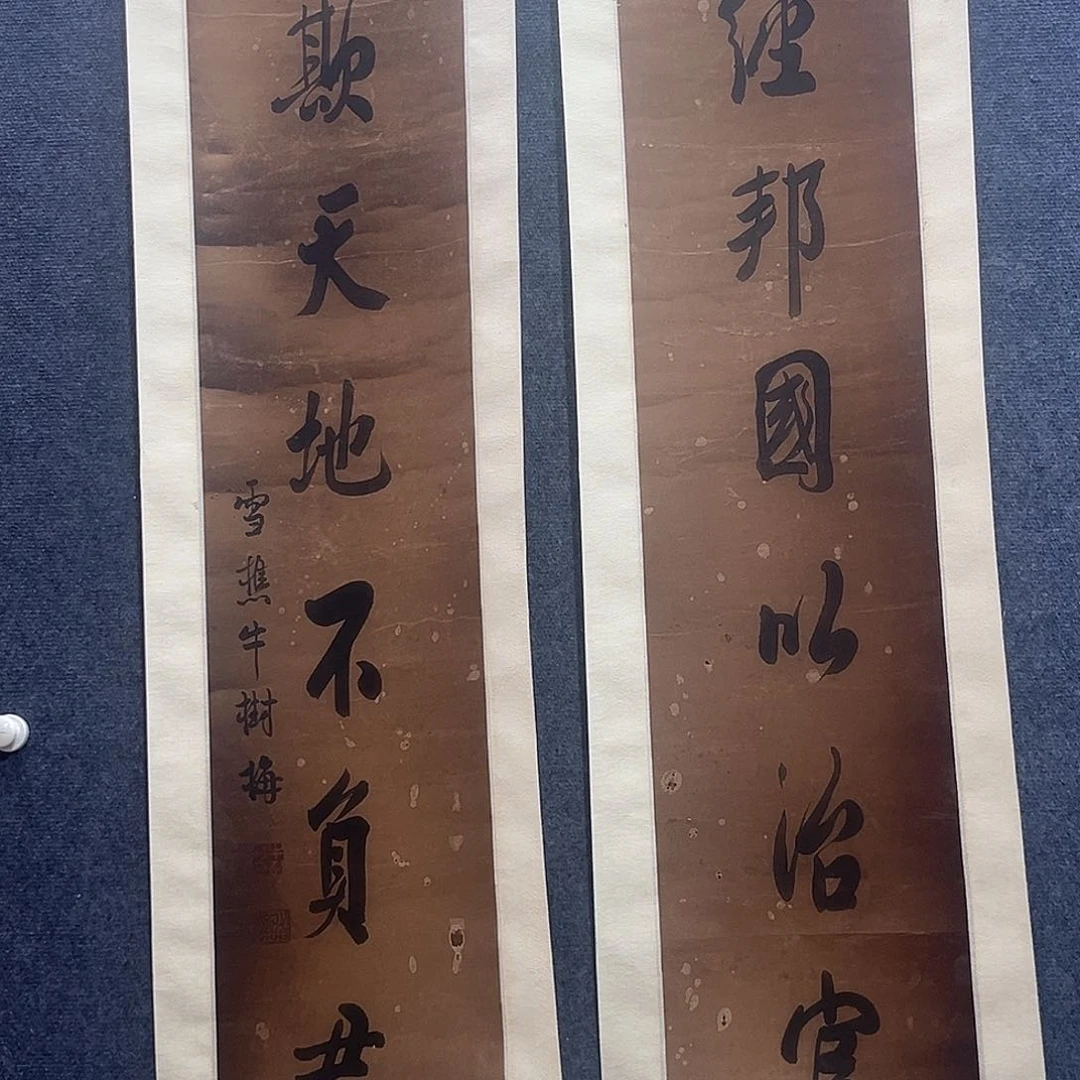 經邦國以治官
欺天地不負
雪樵牛樹梅